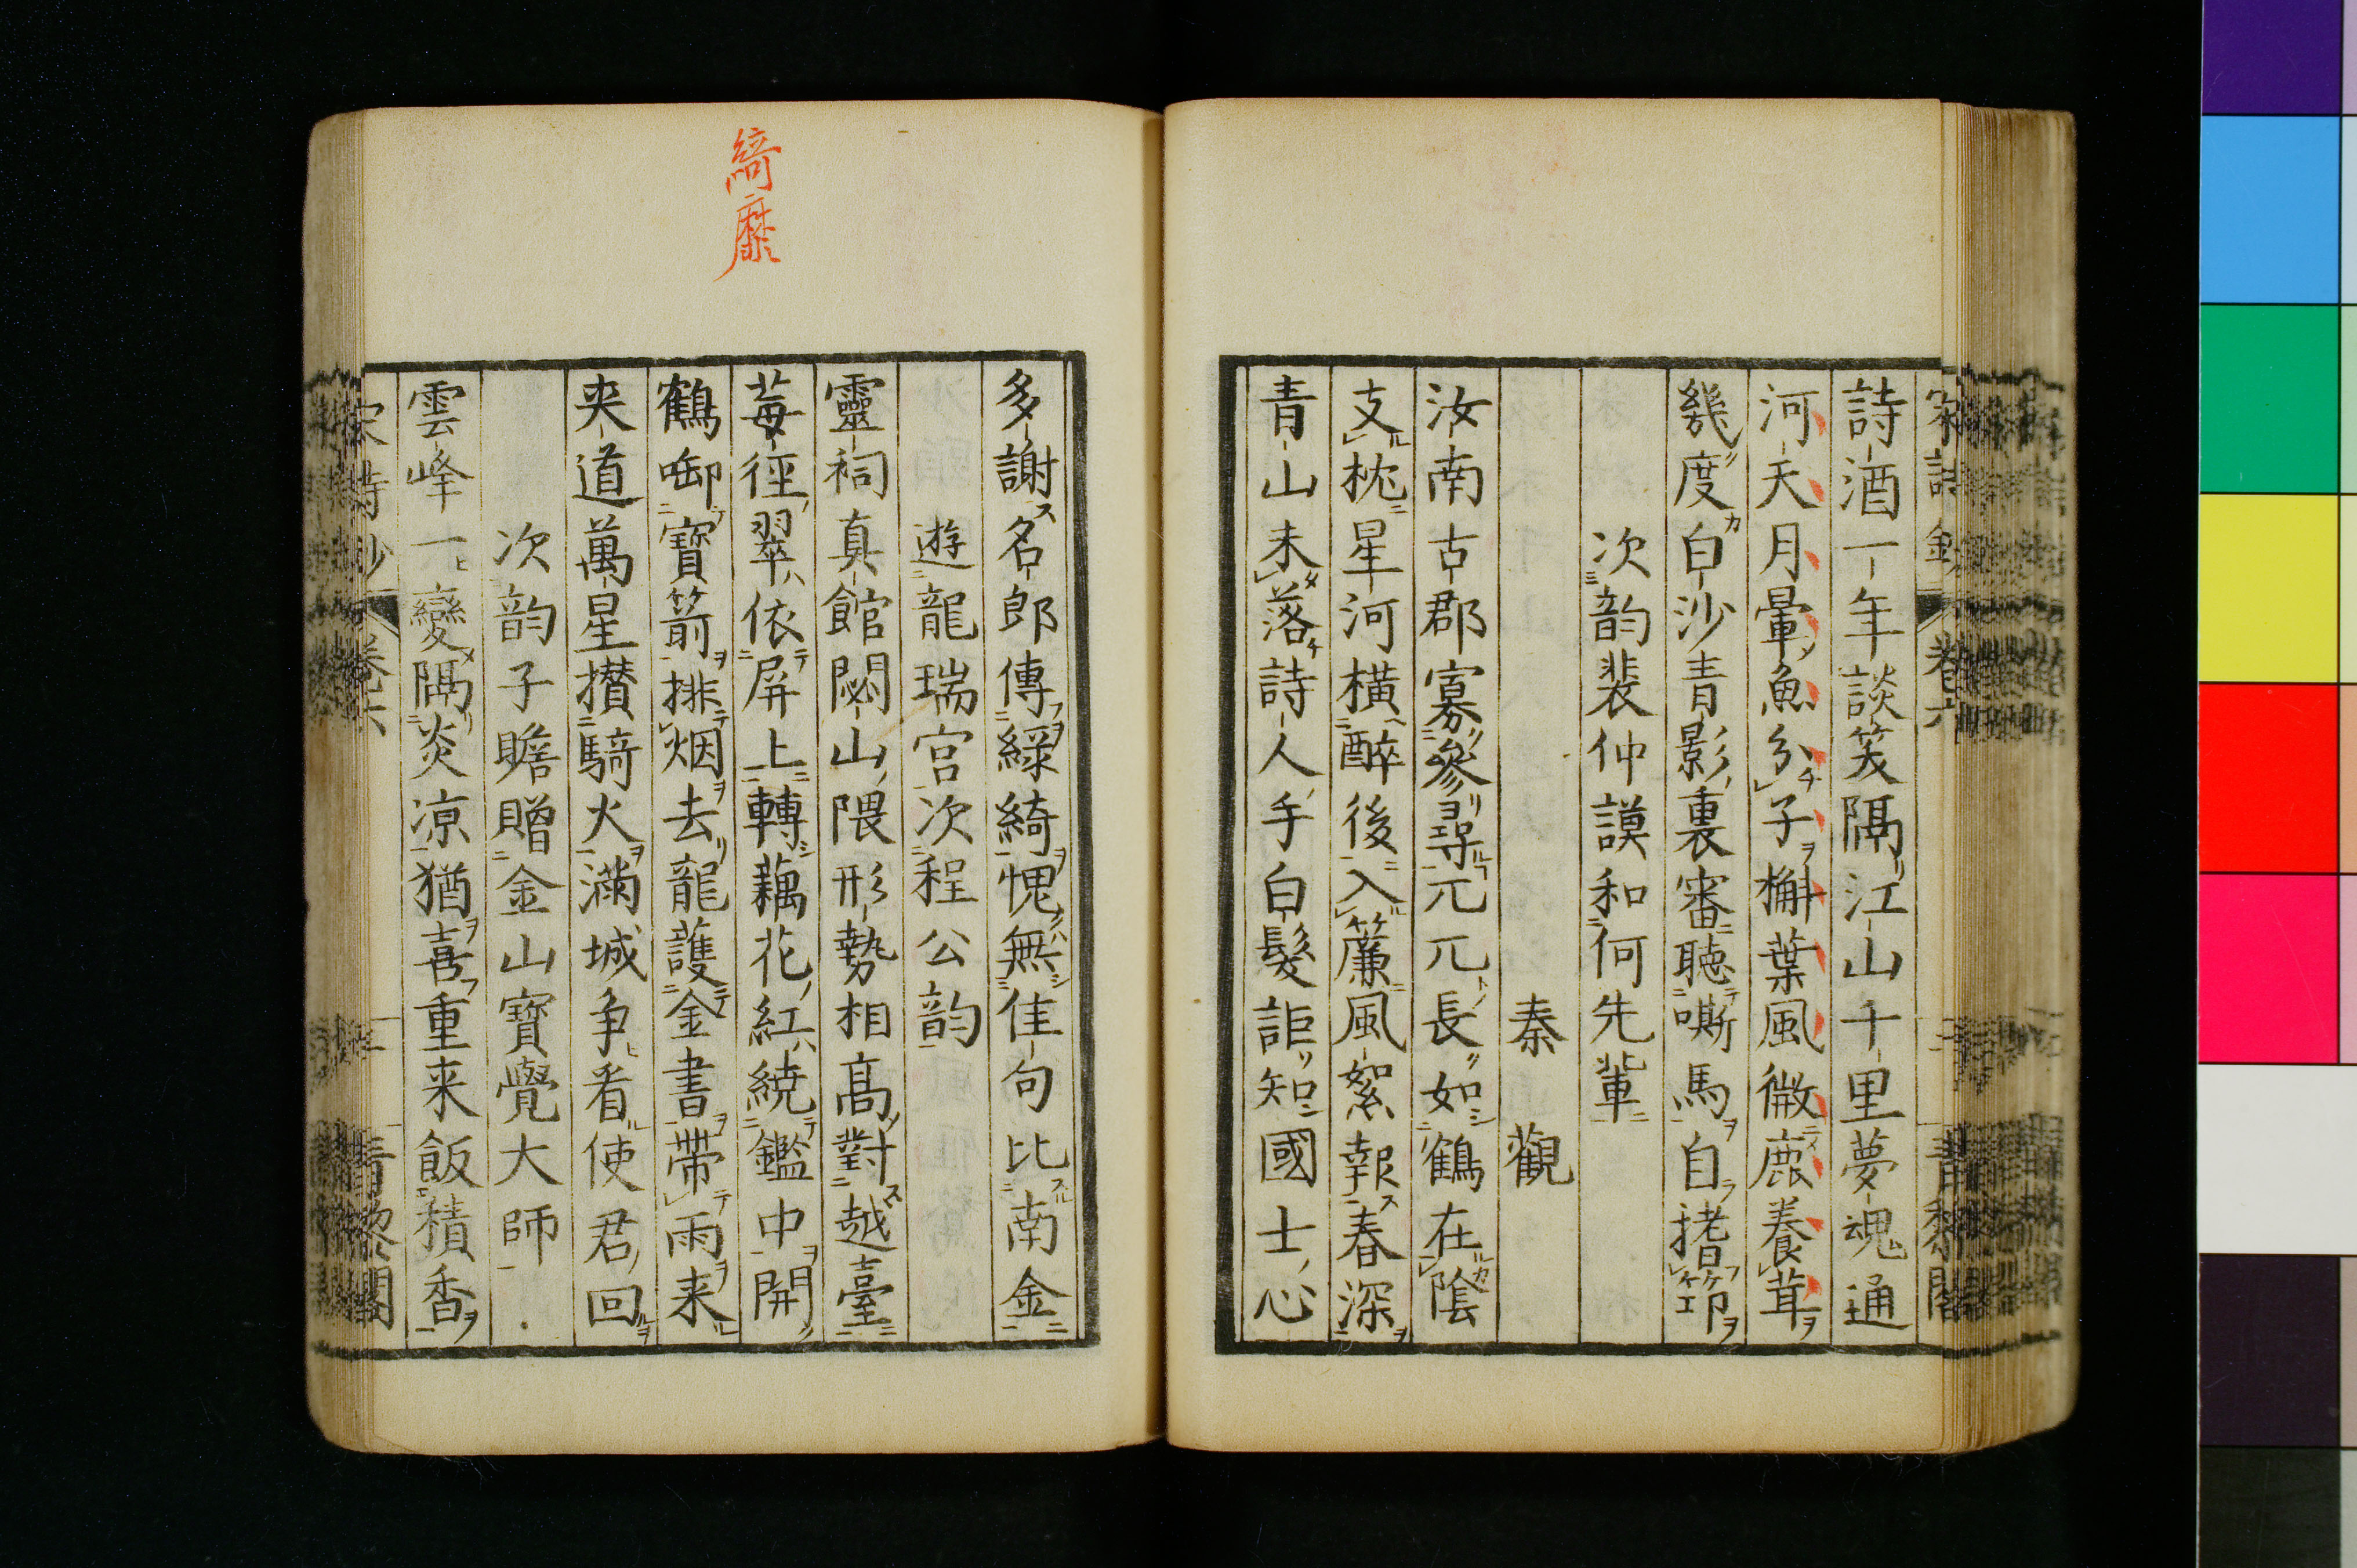 詩酒一年談笑隔江山千里夢魂通
河天月暈魚分子槲葉風微鹿養茸
幾度白沙青影裏審聽嘶馬自搘笻
次韵裴仲謨和何先輩
秦觀
汝南古郡寡參尋兀兀長如鶴在陰
支枕星河橫醉後入簾風絮報春深
青山未落詩人手白髮詎知國士心
綺靡
多謝名郎傳綠綺愧無佳句比南金
遊龍瑞宮次程公韵
靈祠真館閟山隈形勢相高對越臺
莓徑翠依屏上轉藕花紅繞鑑中開
鶴啣寶箭排烟去龍護金書帶雨来
夾道萬星攢騎火滿城争看使君回
次韵子瞻贈金山寶覺大師
雲峰一變隔炎凉猶喜重来飯積香